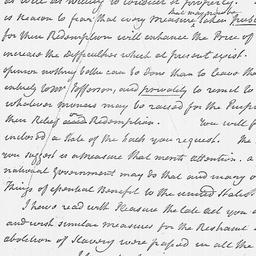 as well as willing to conduct it properly.
is reason to fear that every measure taken
for their Redemption will enhance the Price of
increase the difficulties which at present exist.
opinion nothing better can be done than to leave the
entirely to Mr. Jefferson, and privately to remit to
whatever monies may be raised for the Purpo
their Relief and Redemption. You will f
inclosed a State of the Cash you request. The
you suggest is a measure that merits attention. a
national Government may do that and many o
Things of essential Benefit to the united States
I have read with Pleasure the late act you
and wish similar measures for the
abolition of Slavery were passed in all the